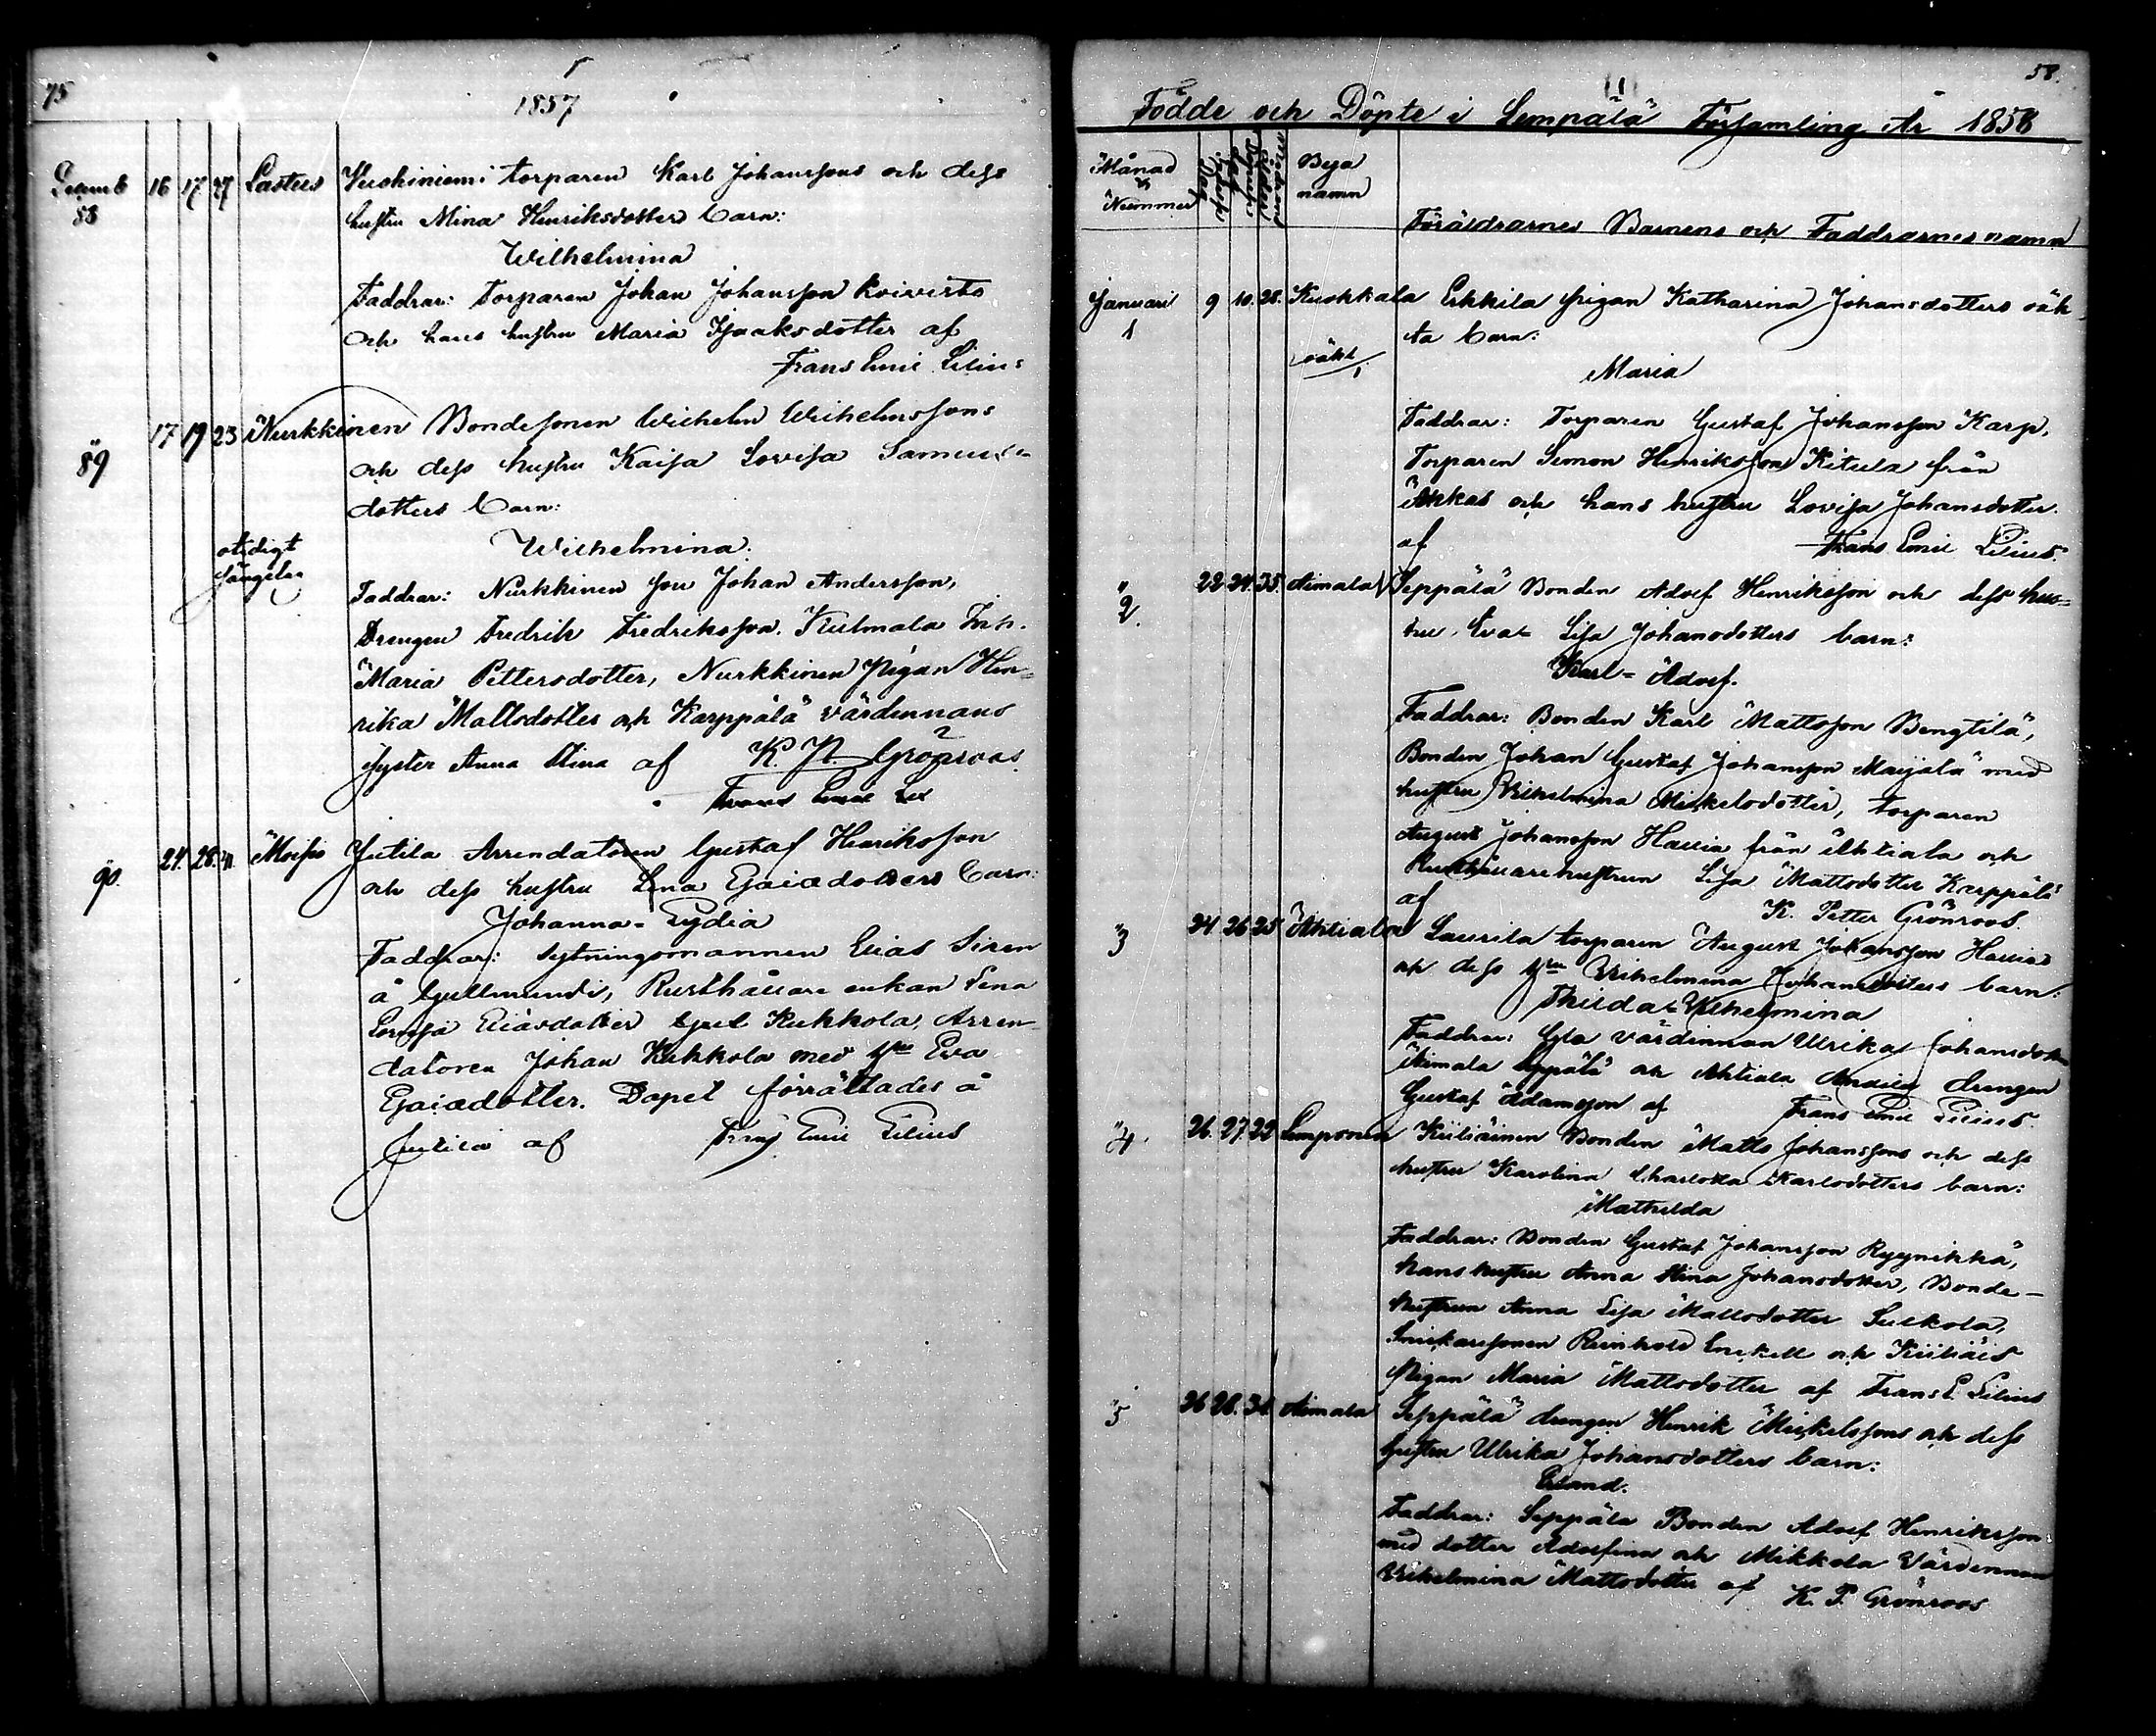 75
1857
Decemb 16 17 27 Lastus Kuokiniemi torparen Karl Johanssons och dess
88
hustru Mina Henriksdotters barn:
Wilhelmina
Faddrar: Torparen Johan Johansson Koivisto
och hans hustru Maria Isaaksdotter af
Frans Emil Lilius
89 17 19 23 Nurkkinen Bondesonen Wilhelm Wilhelmssons
och dess hustru Kaisa Lovisa Samuels
dotters barn:
otidigt
sängelag
Wilhelmina.
Faddrar: Nurkkinen son Johan Andersson,
Drengen Fredrik Fredriksson, Kulmala Inh.
Maria Pettersdotter, Nurkkinen Pigan Hen
rika Mattsdotter och Karppälä värdinnans
syster Anna Stina af K. P. Grönroos
Frans Emil Lil
90. 24. 28. Moisio Jutila Arrendatoren Gustaf Henriksson
och dess hustru Lena Esaiædotters barn:
Johanna-Lydia
Faddrar: Sytningsmannen Elias Siren
å Gullmundi, Rusthållare enkan Lena
Lovisa Eliasdotter Kukkola, Arren
datoren Johan Kukkola med Hru Eva
Esaiædotter. Dopet förrättades å
Jutila af Frans Emil Lilius
58.
Födde och Döpte i Lempälä Församling År 1858
Månad
&
Nummer
Bya
namn
Föräldrarnes Barnens och Faddrarnes namn
Januari 9 10. 28. Kuokkala Erkkilä pigan Katharina Johansdotters oäk
1
ta barn:
oäkt
1
Maria
Faddrar: Torparen Gustaf Johansson Karp,
Torparen Simon Henriksson Kitula från
Akkas och hans hustru Lovisa Johansdotter
af Frans Emil Lilius
2. 22. 24. 35. Aimala Seppälä Bonden Adolf Henriksson och dess hus
tru Eva Lisa Johansdotters barn:
Karl-Adolf.
Faddrar: Bonden Karl Mattsson Bengtilä,
Bonden Johan Gustaf Johansson Maijala med
hustru Wilhelmina Mickelsdotter, torparen
August Johansson Hauia från Ahtiala och
Rusthållarehustrun Lisa Mattsdotter Karppälä
af K. Petter Grönroos.
3 24 26 25 Ahtiala Laurila torparen August Johansson Hauias
och dess Hru Wilhelmina Johansdotters barn:
Thilda-Wilhelmina
Faddrar: Gla värdinnan Ulrika Johansdotter
Aimala Seppälä och Ahtiala Anttila drengen
Gustaf Adamsson af Frans Emil Lilius
4. 26. 27. 22 Lemponen Kiiliäinen Bonden Matts Johanssons och dess
hustru Karolina Charlotta Karlsdotters barn:
Mathilda
Faddrar: Bonden Gustaf Johansson Ryynikkä,
hans hustru Anna Stina Johansdotter, Bonde-
hustrun Anna Lisa Mattsdotter Sulkola,
Snickaresonen Reinhold Enckell och Kiiliäis
Pigan Maria Mattsdotter af Frans E Lilius
5 26 28. 31 Aimala Seppälä drengen Henrik Mickelssons och dess
hustru Ulrika Johansdotters barn:
Erland.
Faddrar: Seppälä Bonden Adolf Henriksson
med dotter Adolfina och Mikkola Värdinnan
Wilhelmina Mattsdotter af K. P. Grönroos